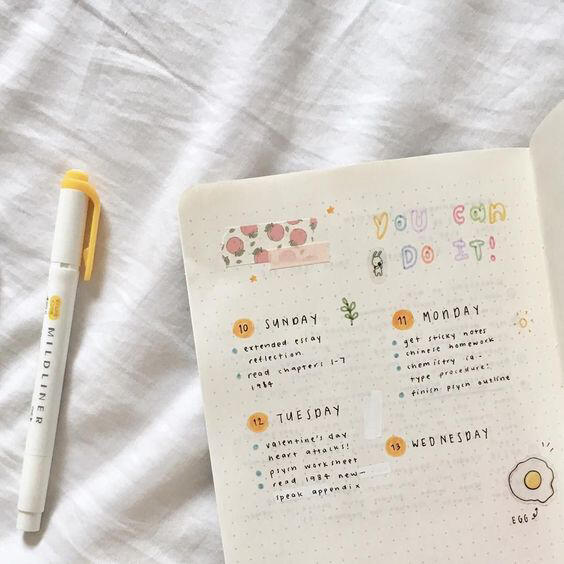 YOU CAN
DO IT!
MILDLINER
10 SUNDAY
extended essay
reflection.
read chapters 1-7
1984
11 MONDAY
get sticky notes
chinese homework
chemistry ia -
type procedure!
finish psych outline
12 TUESDAY
valentine's day
heart attacks!
psych worksheet
read 1984 new-
speak appendix
13 WEDNESDAY
EGG